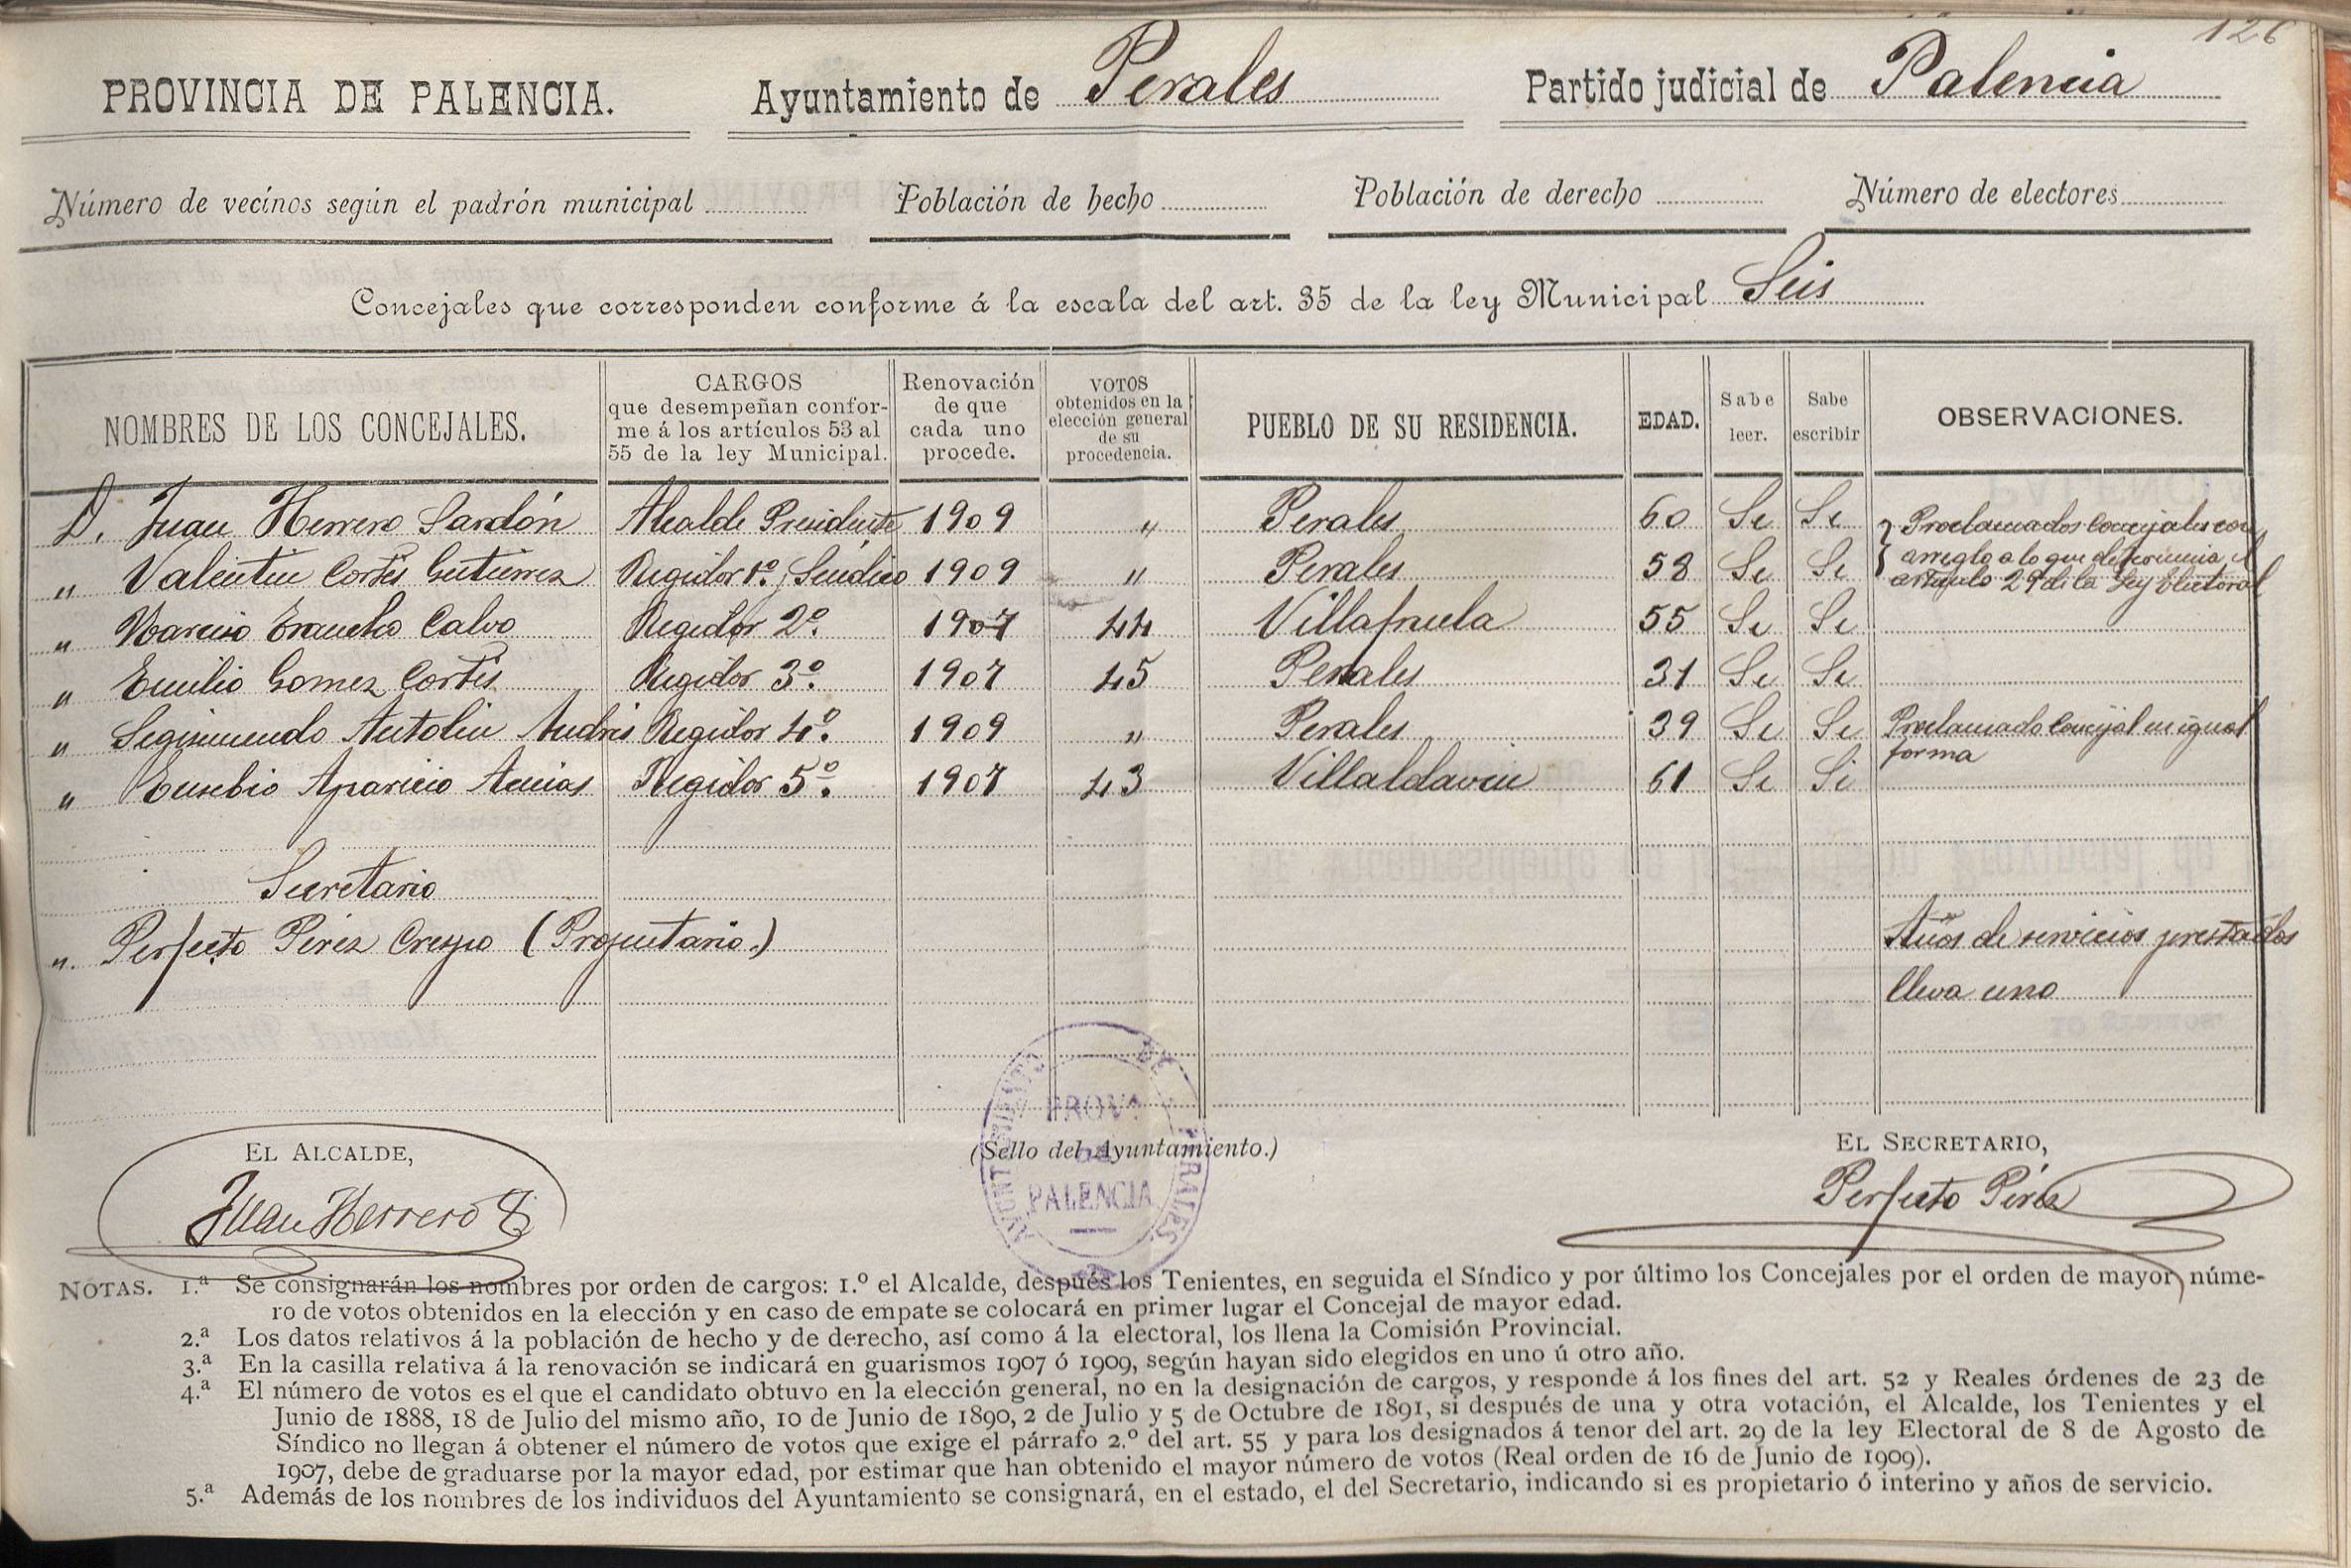 126
PROVINCIA DE PALENCIA. Ayuntamiento de Perales Partido judicial de Palencia
Número de vecinos según el padrón municipal Población de hecho Población de derecho Número de electores
Concejales que corresponden conforme á la escala del art. 35 de la ley Municipal Seis
NOMBRES DE LOS CONCEJALES. CARGOS que desempeñan confor- me á los artículos 53 al 55 de la ley Municipal. Renovación de que cada uno procede. VOTOS obtenidos en la elección general de su procedencia. PUEBLO DE SU RESIDENCIA. EDAD. Sabe leer. Sabe escribir OBSERVACIONES.
D. Juan Herrero Sardón Alcalde Presidente 1909 " Perales 60 Si Si Proclamados Concejales con
" Valentin Cortés Gutierrez Regidor 1º. y Sindico 1909 " Perales 58 Si Si arreglo a lo que determina el
articulo 29 de la Ley Electoral
" Narciso Calvo Regidor 2º. 1907 44 Villafruela 55 Si Si
" Emilio Gomez Cortés Regidor 3º. 1907 45 Perales 31 Si Si
" Segismundo Antolin Andrés Regidor 4º. 1909 " Perales 39 Si Si Proclamado Concejal en igual
forma
" Eusebio Aparicio Regidor 5º. 1907 43 Villaldavin 61 Si Si
Secretario
". Perfecto Pérez Crespo (Propietario.) Años de servicios prestados
lleva uno
EL ALCALDE, (Sello del Ayuntamiento.) EL SECRETARIO,
Juan Herrero Perfecto Pérez
AYUNTAMIENTO DE PERALES
PROVª
DE
PALENCIA
NOTAS. 1.ª Se consignarán los nombres por orden de cargos: 1.º el Alcalde, después los Tenientes, en seguida el Síndico y por último los Concejales por el orden de mayor núme-
ro de votos obtenidos en la elección y en caso de empate se colocará en primer lugar el Concejal de mayor edad.
2.ª Los datos relativos á la población de hecho y de derecho, así como á la electoral, los llena la Comisión Provincial.
3.ª En la casilla relativa á la renovación se indicará en guarismos 1907 ó 1909, según hayan sido elegidos en uno ú otro año.
4.ª El número de votos es el que el candidato obtuvo en la elección general, no en la designación de cargos, y responde á los fines del art. 52 y Reales órdenes de 23 de
Junio de 1888, 18 de Julio del mismo año, 10 de Junio de 1890, 2 de Julio y 5 de Octubre de 1891, si después de una y otra votación, el Alcalde, los Tenientes y el
Síndico no llegan á obtener el número de votos que exige el párrafo 2.º del art. 55 y para los designados á tenor del art. 29 de la ley Electoral de 8 de Agosto de
1907, debe de graduarse por la mayor edad, por estimar que han obtenido el mayor número de votos (Real orden de 16 de Junio de 1909).
5.ª Además de los nombres de los individuos del Ayuntamiento se consignará, en el estado, el del Secretario, indicando si es propietario ó interino y años de servicio.